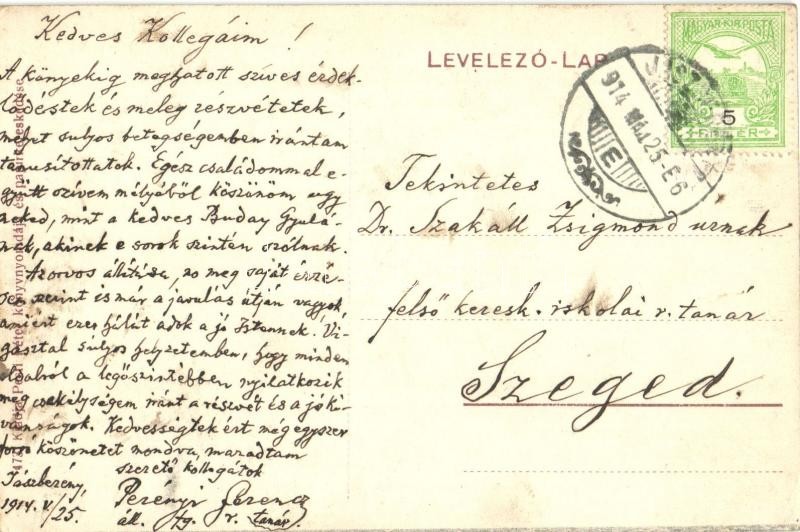 Kedves Kollegáim!
A könyekig meghatott szíves érdek-
lődéstek és meleg részvétetek,
melyet sulyos betegségemben irántam
tanusítottatok. Egész családommal e-
gyütt szívem mélyéből köszönöm ugy
neked, mint a kedves Buday Gyulá-
nak, akinek e sorok szintén szólnak.
Az orvos állítása, so meg saját érzé-
sem szerint is már a javulás útján vagyok
amiért ezer hálát adok a jó Istennek. Vi-
gasztal sulyos helyzetemben, hogy minden
oldalról a legőszintébben nyilatkozik
meg csekélységem iránt a részvét és a jó ki-
vánságok. Kedvességtek ért még egyszer
köszönetet mondva, maradtam
szerető kollegátok
Jászberény
1914. V/25.
Perényi Ferencz
áll. fg. r. tanár.
LEVELEZŐ-LAP
MAGYAR KIR. POSTA
5
FILLÉR
914 MÁJ 25 E6
E
Tekintetes
Dr. Szakáll Zsigmond urnak
felső keresk. iskolai r. tanár
Szeged.